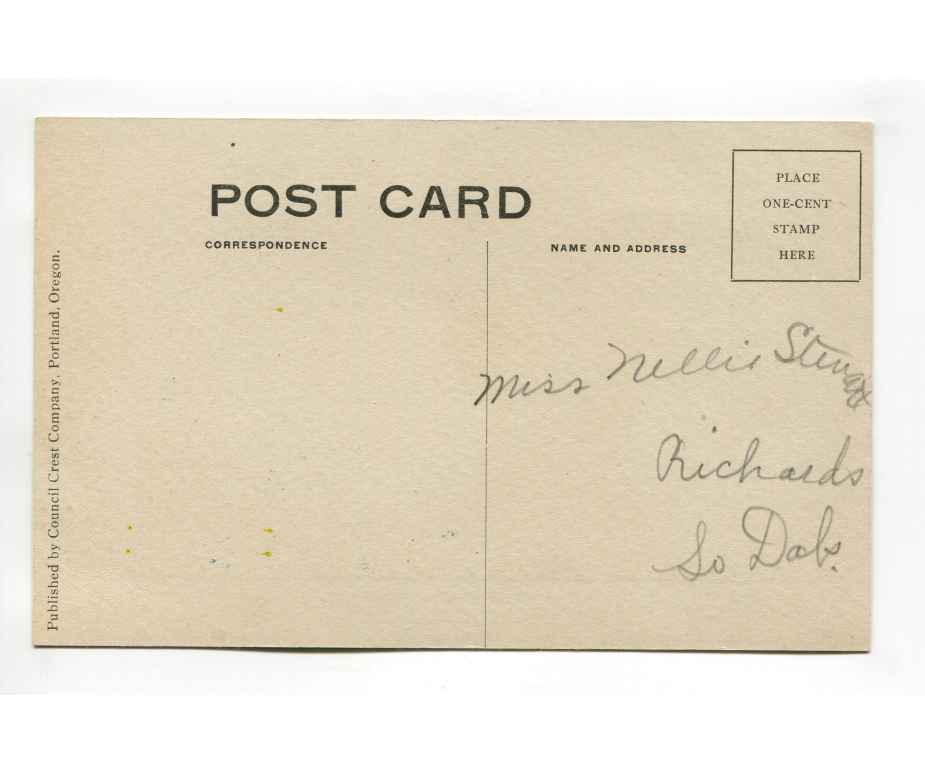 POST CARD
CORRESPONDENCE
NAME AND ADDRESS
PLACE
ONE-CENT
STAMP
HERE
Published by Council Crest Company, Portland, Oregon.
Miss Nellie
Richards
So Dak.